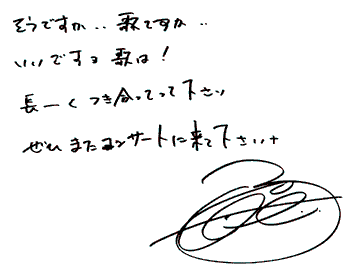 そうですか‥歌ですか‥
いいですよ歌は!
長ーくつき合ってって下さい
ぜひまたコンサートに来て下さい+